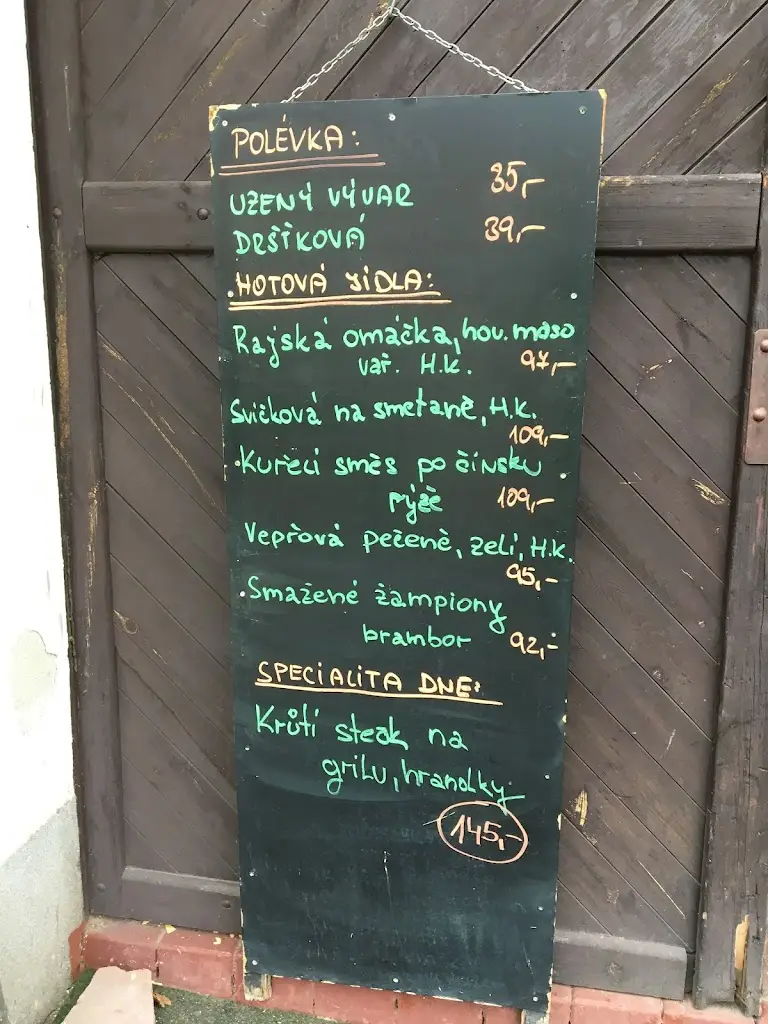 POLÉVKA:
UZENÝ VÝVAR 35,-
DRŠŤKOVÁ 39,-
HOTOVÁ JÍDLA:
Rajská omáčka, hov. maso
vař. H.k. 97,-
Svíčková na smetaně, H.k.
109,-
Kuřecí směs po čínsku
rýže 109,-
Vepřová pečeně, zelí, H.k.
95,-
Smažené žampiony
brambor 92,-
SPECIALITA DNE:
Krůtí steak na
grilu, hranolky
145,-